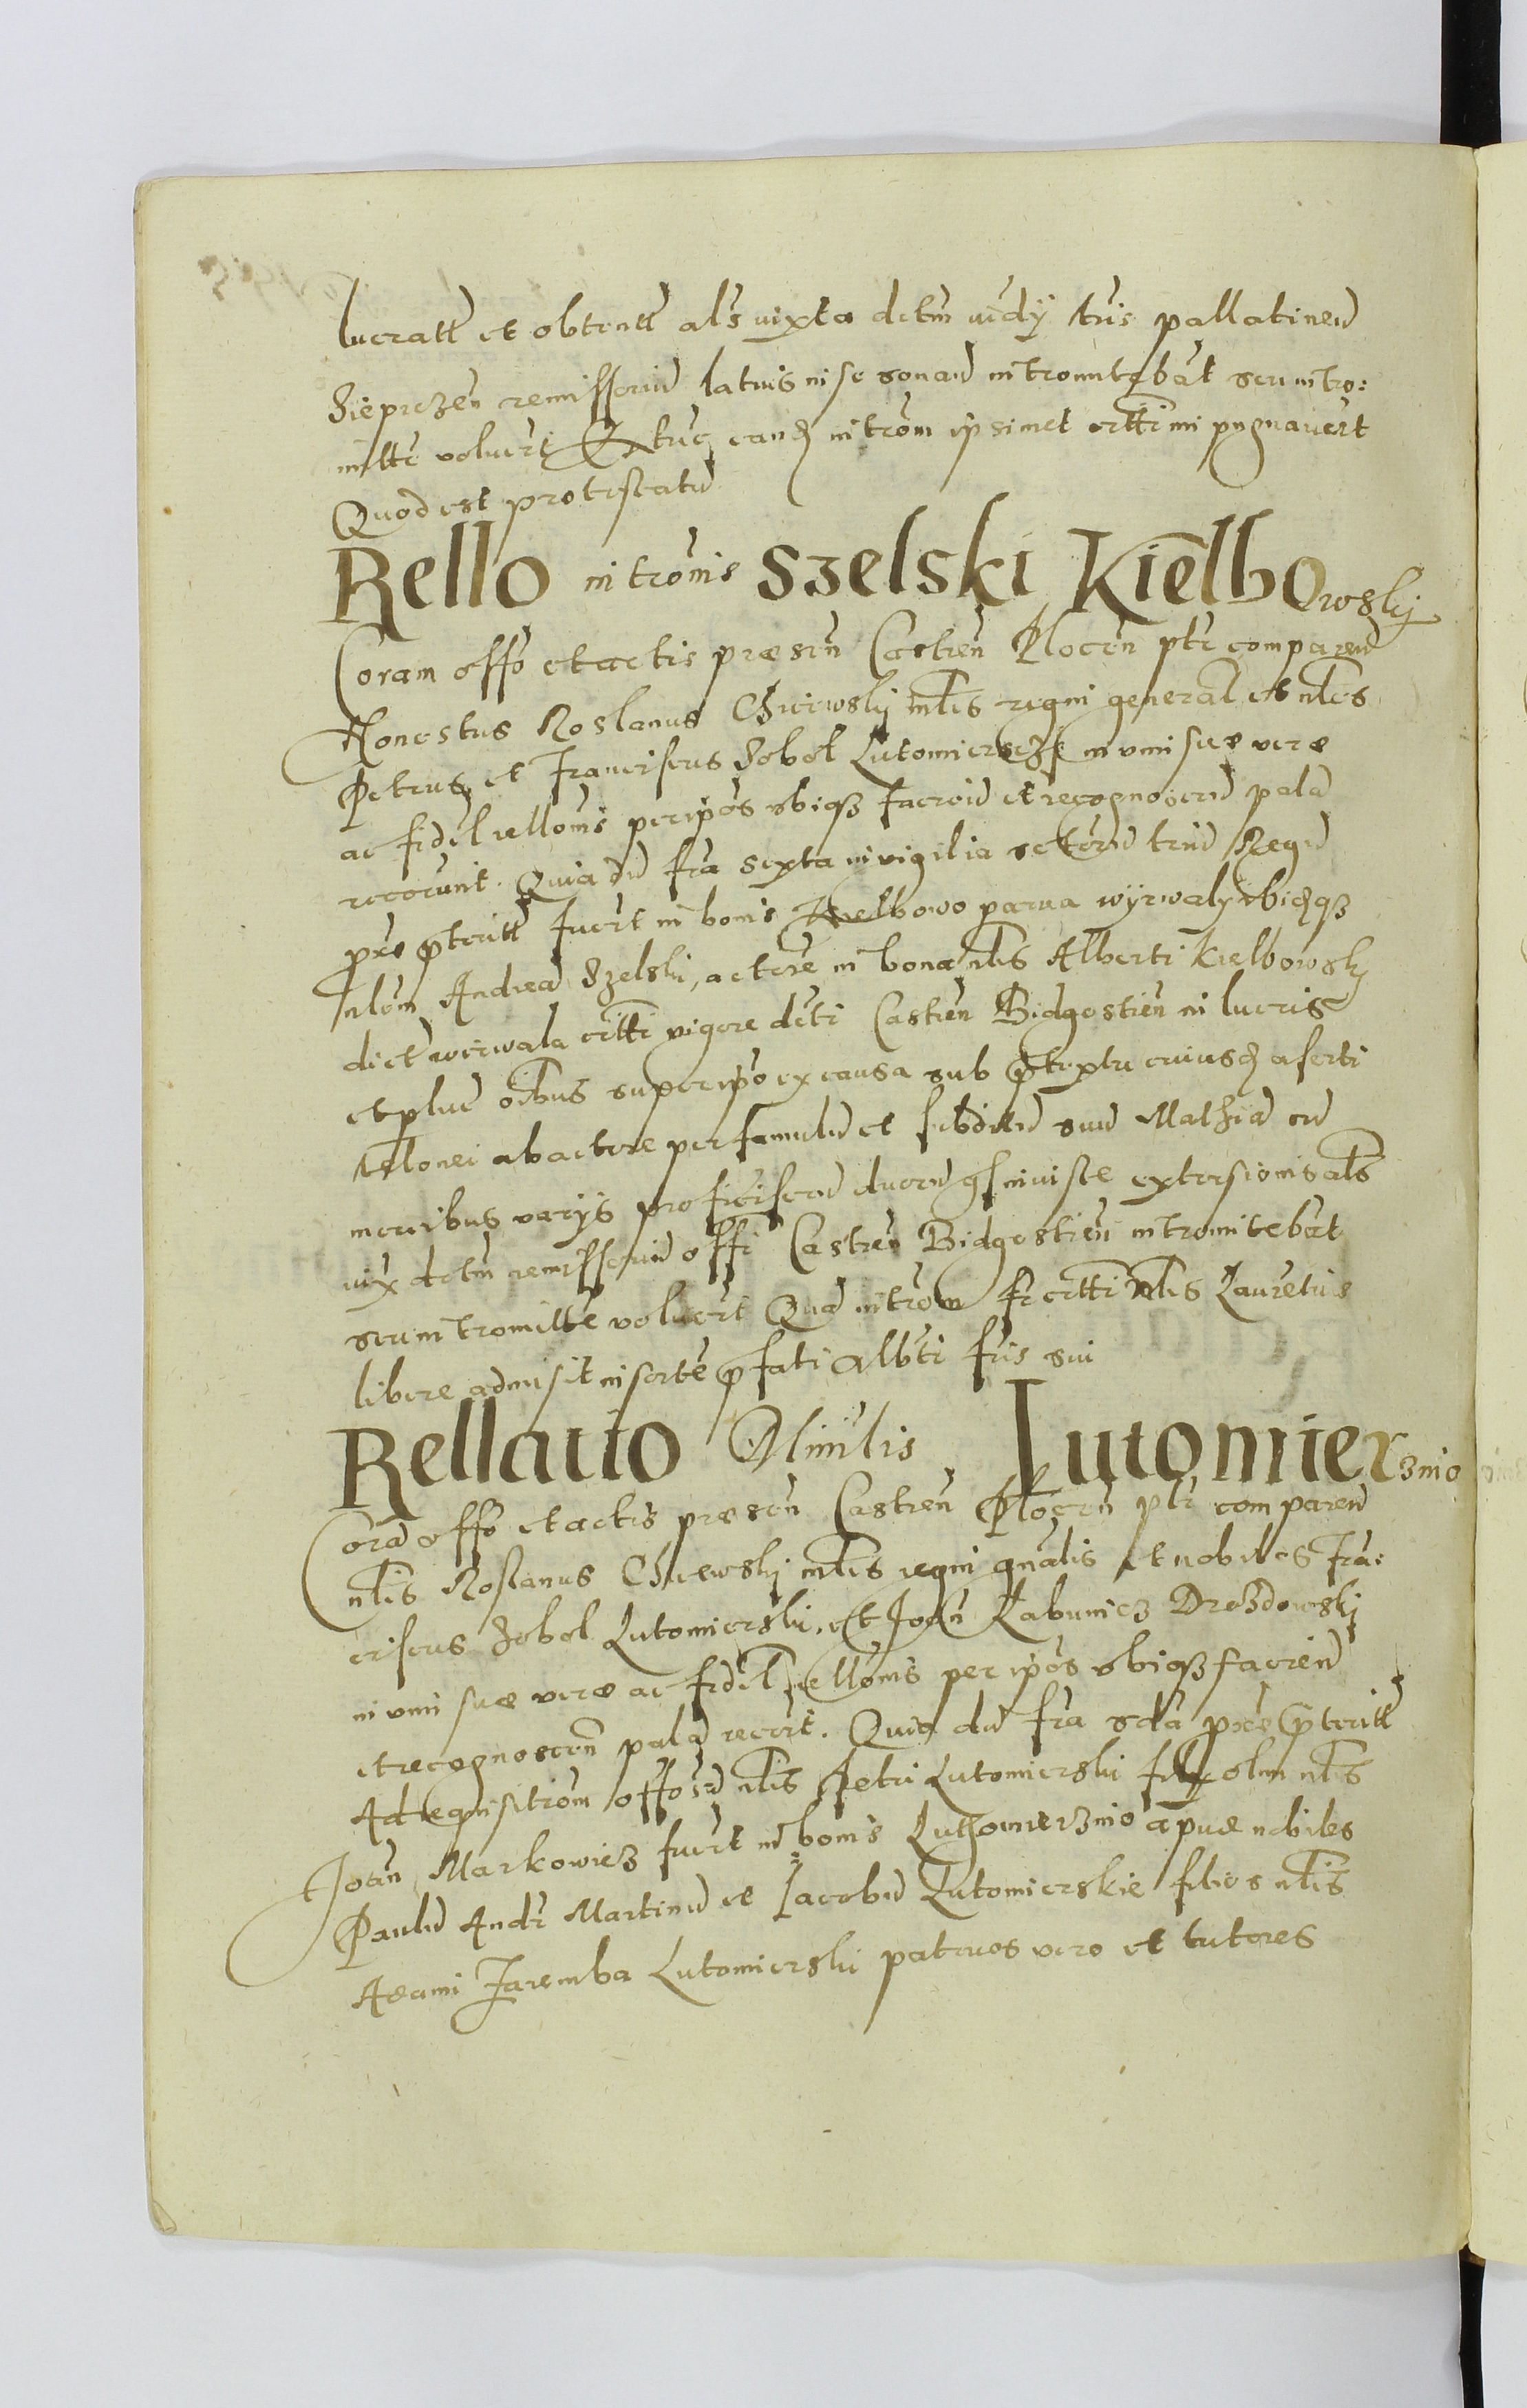 lucratt et obtentt als iuxta detm iudy tris pallatinen
Sieprczen remisseriu latius in se sonan intromitebat seu intro:
mitte voluert Extuc eand introm ipsimet crtti impugnavert
Quod est protestatu
Rello intromis Szelski Kielbowsky
Coram offo et actis præsen Castren Plocen ptr comparen
Honestus Roslanus Chiewsky mtis regni general et nles
Petrus et Franciscus Sobol Lutomierscze in vim suæ veræ
ac fidel rellonis per ipos vbiqz facien et recognoscend pala
recerunt. Quia du fra sexta in vigilia sctoru triu Regu
prox pteritt fuert in bonis Kielbowo parua wyrwaly vbi
nlem Andrea Szelski, actore in bona nlis Alberti Kielbowsky
dict wyrwala crtti vigore decti Castren Bidgostien in lucris
et plue oibus super ipo ex causa sub ptextu cuiusd aserti
telonei ab actore per famulu et subditu suu Mathia cu
mercibus varys proficiscen duceru extorsionis als
iux detm remisseriu offi Castren Bidgostien intromitebat
seu intromitte voluert Qua introm fr crtti nlis Lauretius
libere admisit in sorte pfati Albti fris sui
Rellatio Similis Lutomierznio
Cora offo et actis præsen Castren Plocen ptr comparen
nlis Roslanus Chiewsky mtis regni gnalis et nobiles Fran:
ciscus Sobol Lutomierski, et Joan Labunicz Drozdowski
in vim suæ veræ ac fidel rellonis per ipos vbiqz facien
et recognoscen pala recert. Quia du fra scda prox pteritt
Ad requisitiom offosa nlis Petri Lutomierski fily olim nlis
Joan Markowicz fuert in bonis Luthomierznio apud nobiles
Paulu Andr Martinu et Jacobu Lutomierskie filios nlis
Adami Jaremba Lutomierski patruos vero et tutores